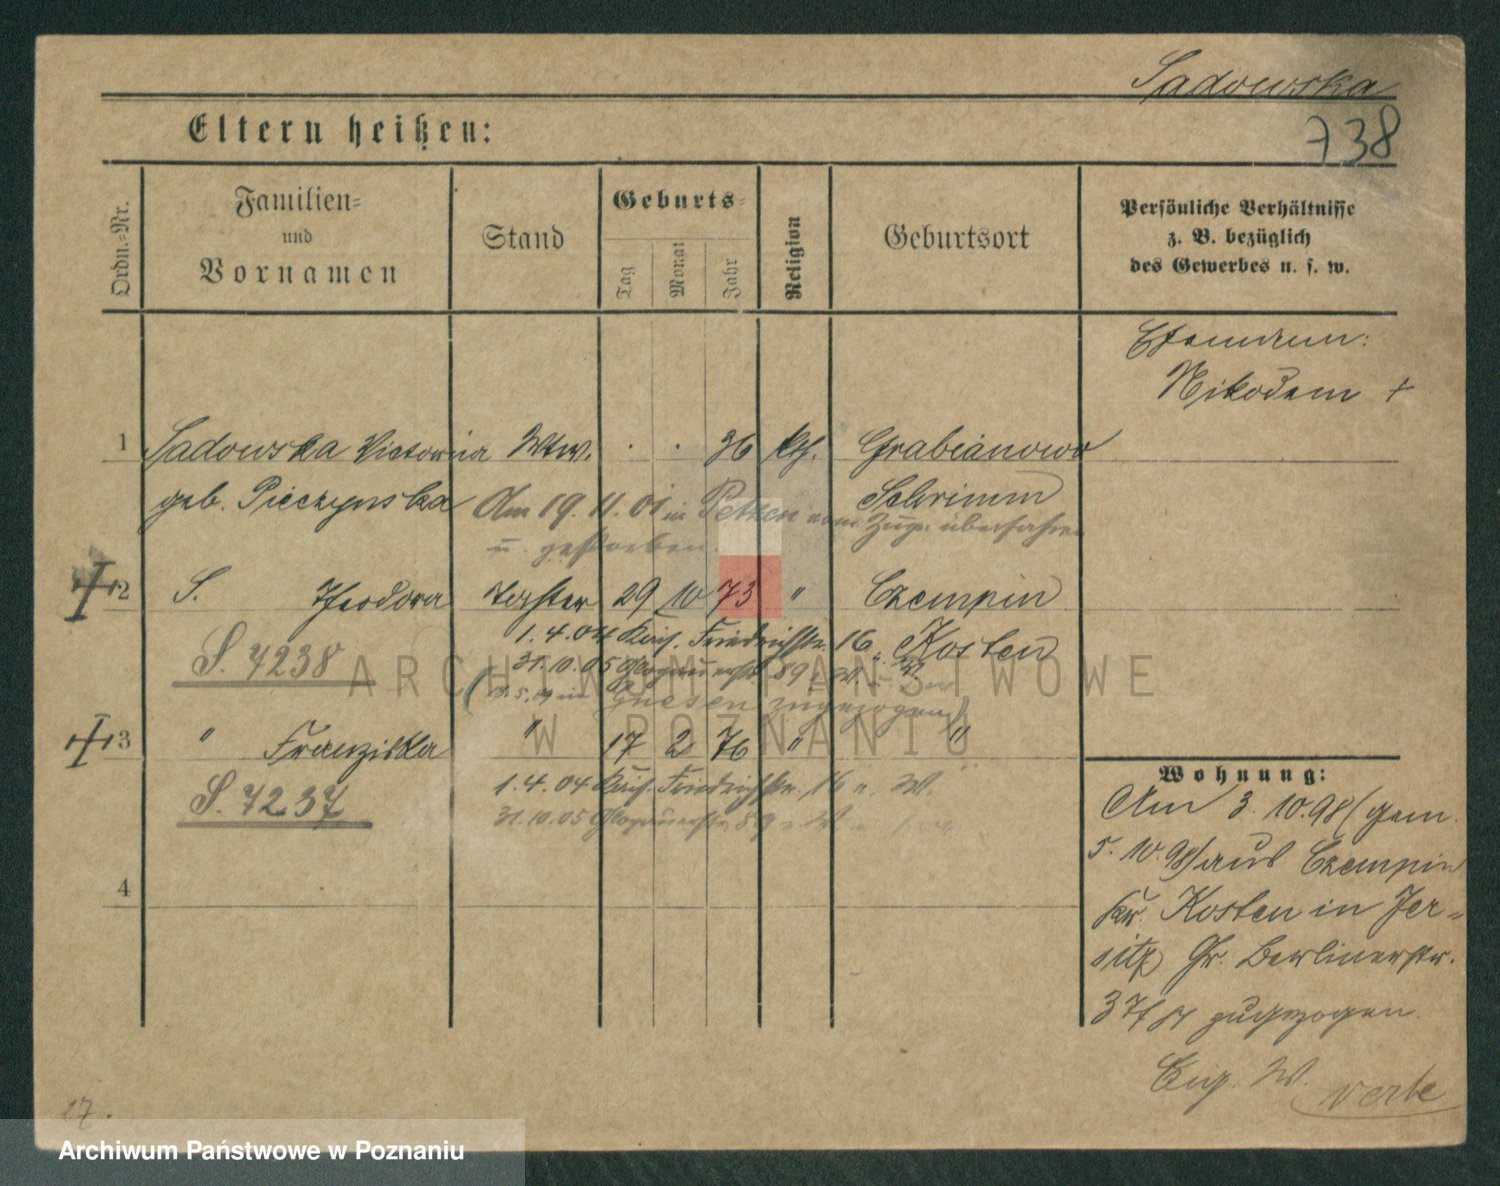 Sadowska
738
Eltern heißen:
Ordn.-Nr.
Familien-
und
Vornamen
Stand
Geburts-
Tag
Monat
Jahr
Religion
Geburtsort
Persönliche Verhältnisse
z. B. bezüglich
des Gewerbes u. s. w.
Ehemann:
Nikodem +
1 Sadowska Victoria Wtw. . . 36 kth. Grabianowo
geb. Pieczynska Schrimm
Am 19. 11. 01 in vom Zuge überfahren
u. gestorben.
2 S. Theodora Tochter 29 10 73 " Czempin
S. 7238
1. 4. 04 Kais. Friedrichstr. 16 Kosten
31. 10. 05 Glogauerstr 89
in Gnesen zugezogen)
3 " Franziska " 17 2 76 " "
S. 7237
1. 4. 04 Kais. Friedrichstr. 16 n. W.
31. 10. 05 Glogauerstr 89
4
Wohnung:
Am 3. 10. 98 (gem.
5. 10. 98) aus Czempin
Kr. Kosten in Jer-
sitz Gr. Berlinerstr.
37 zugezogen.
Eig. W.
27.
ARCHIWUM PAŃSTWOWE
W POZNANIU
Archiwum Państwowe w Poznaniu